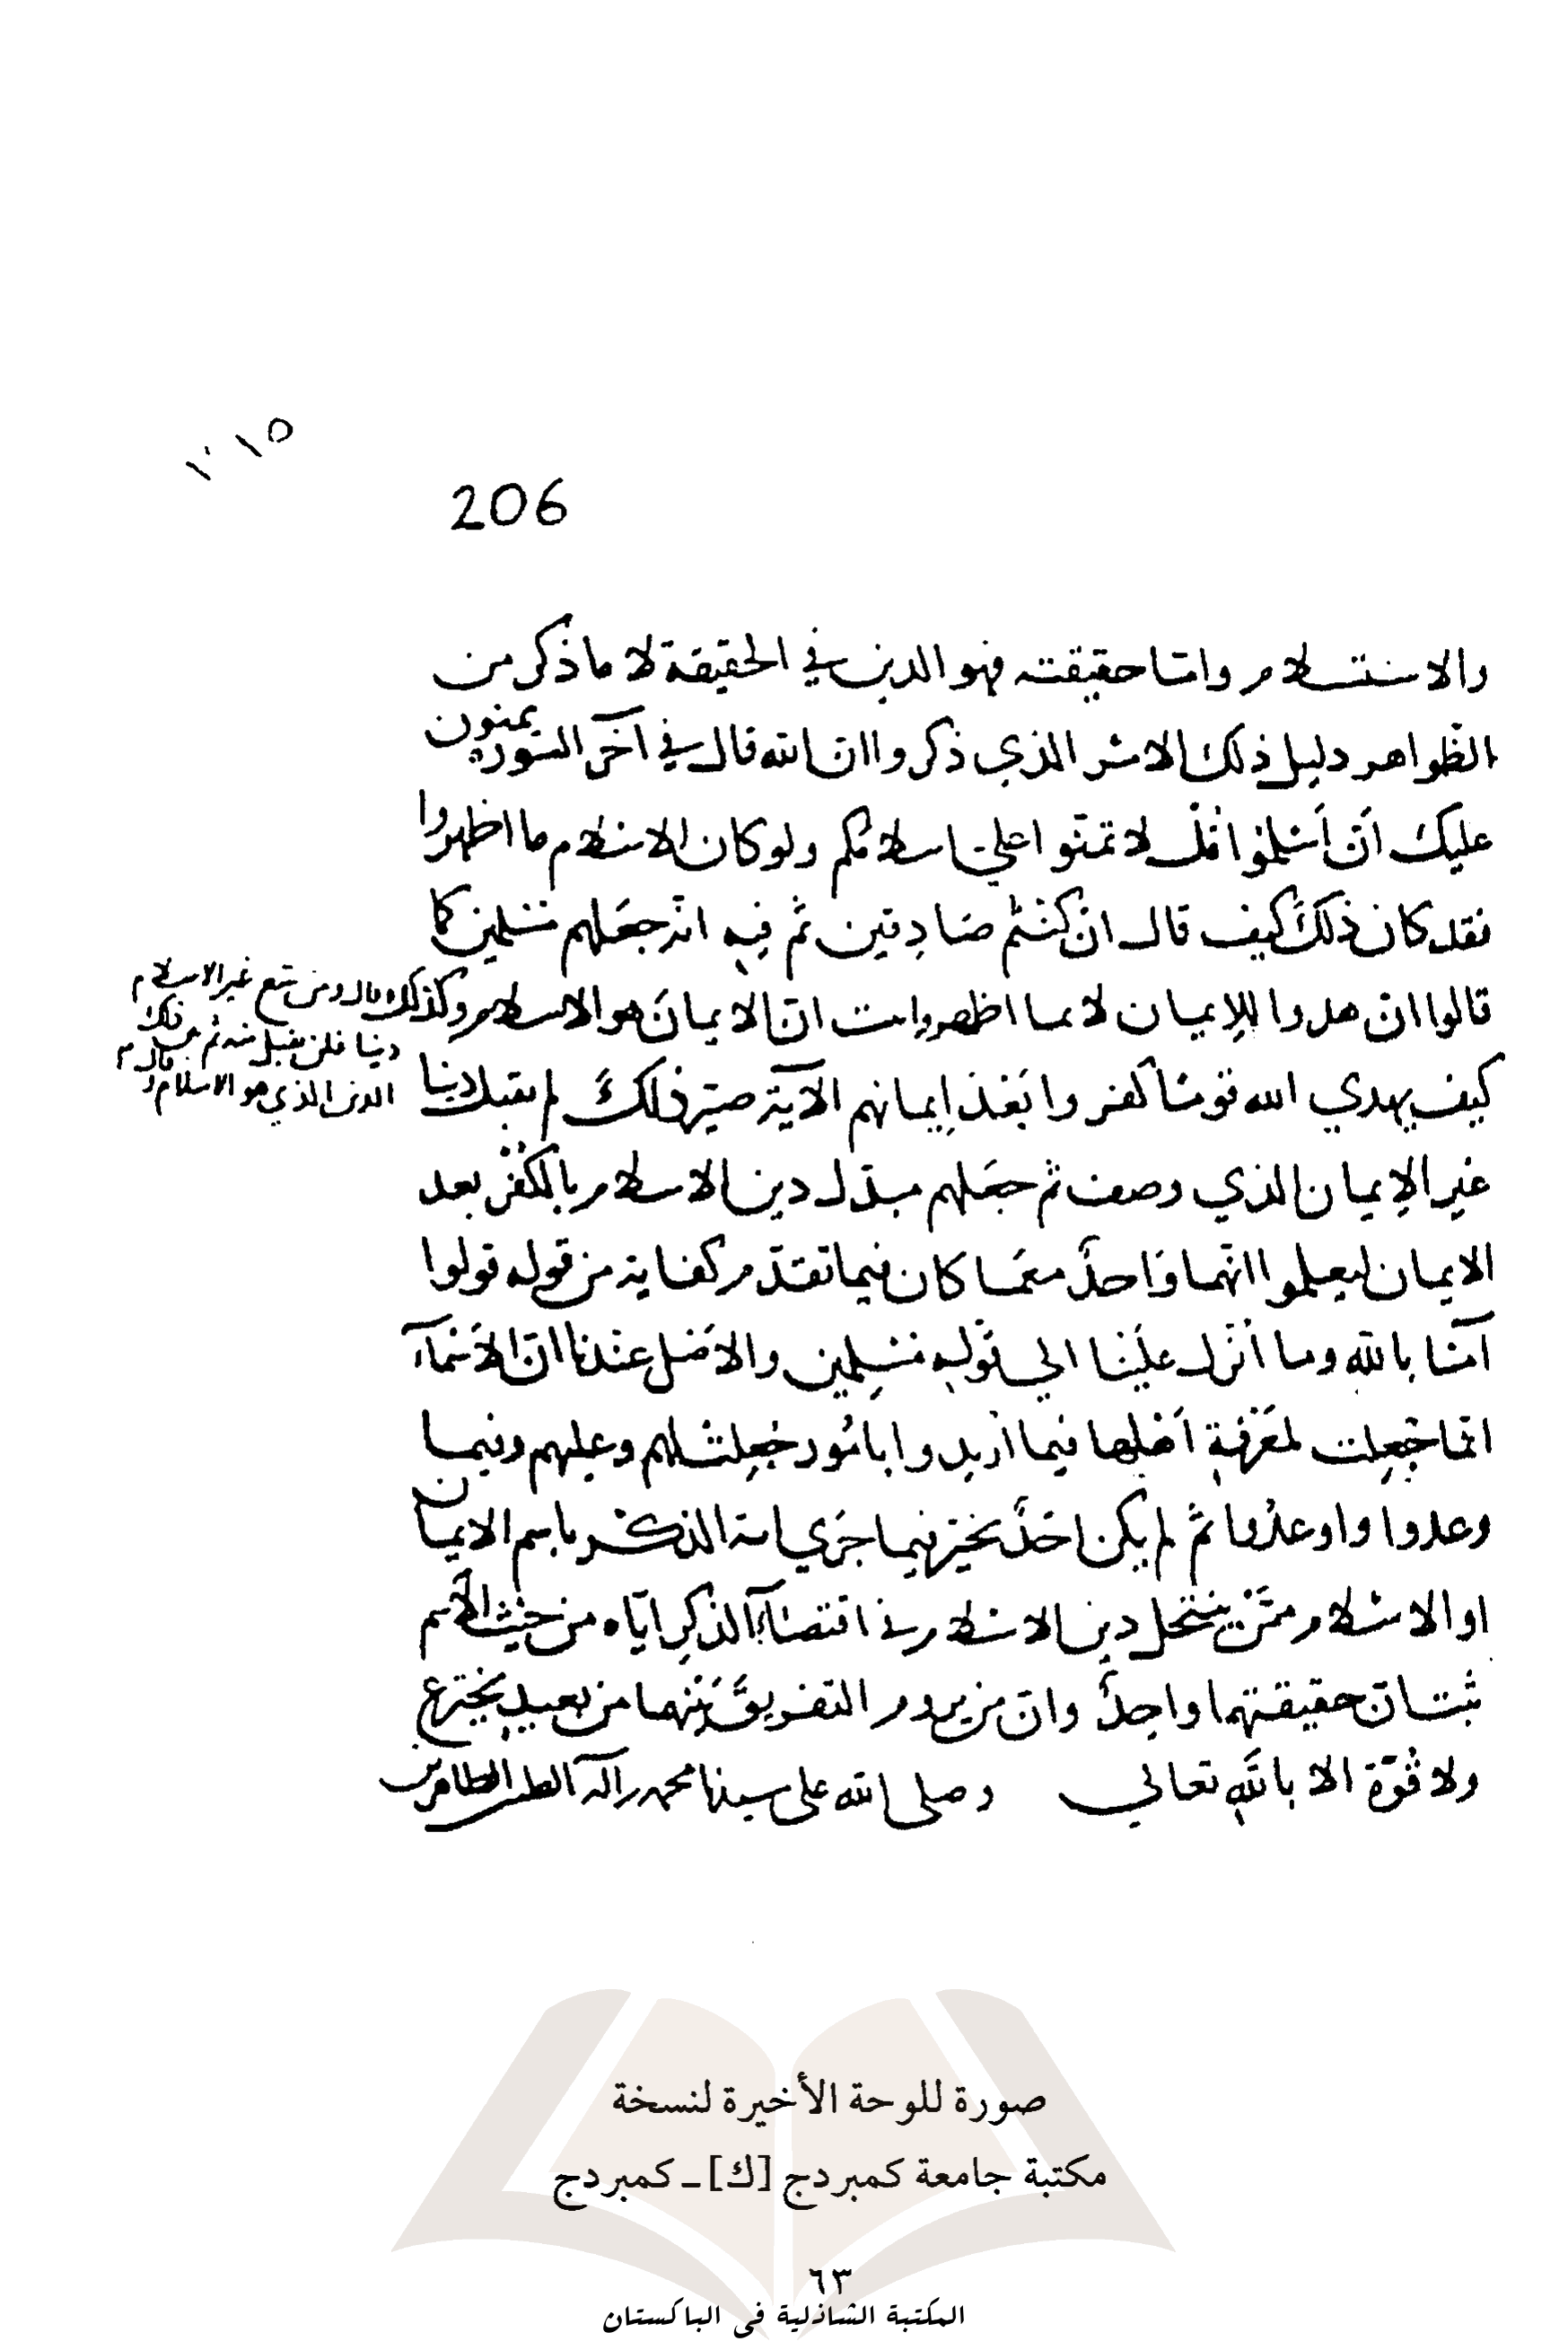 ١٠١٥
206
والاستسلام واما حقيقته فهو الدين في الحقيقة لا ما ذكر من
الظواهر دليل ذلك الامر الذي ذكروا ان الله قال في آخر السورة يمنون
عليك أن أسلموا قل لا تمنوا علي اسلامكم ولو كان الاسلام ما اظهروا
فقد كان ذلك كيف قال ان كنتم صادقين ثم فيه انه جعلهم مسلمين كما
قالوا ان هدوا للإيمان لا بما اظهروا ان الايمان هو الاسلام وكذلك قال ومن يبتغ غير الاسلام
دينا فلن يقبل منه ثم قال
الدين الذي هو الاسلام
كيف يهدي الله قوما كفروا بعد إيمانهم الآية صير ذلك لم يقبل دينا
غير الإيمان الذي وصف ثم جعلهم مبدل دين الاسلام بالكفر بعد
الايمان ليعلموا انهما واحد مع ما كان فيما تقدم كفاية من قوله قولوا
آمنا بالله وما أنزل علينا الي قوله مسلمين والاصل عندنا ان الأسماء
انما جعلت لمعرفة أهلها فيما اريدوا بامور جعلت لهم وعليهم وفيما
وعدوا واوعدوا ثم لم يكن احد يخير فيما جري به الذكر باسم الايمان
او الاسلام ممن ينتحل دين الاسلام في اقتضاء الذكر اياه من حيث الاسم
ثبت ان حقيقتهما واحد وان من يروم التفريق بينهما من بعيد يخترع
ولا قوة الا بالله تعالي وصلى الله على سيدنا محمد وآله الطيبين الطاهرين
صورة للوحة الأخيرة لنسخة
مكتبة جامعة كمبردج [ك] ـ كمبردج
٦٣
المكتبة الشاذلية في الباكستان